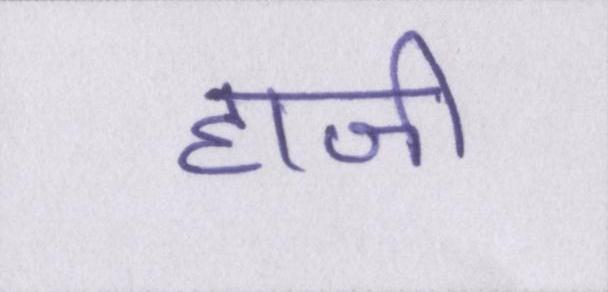 हाजी